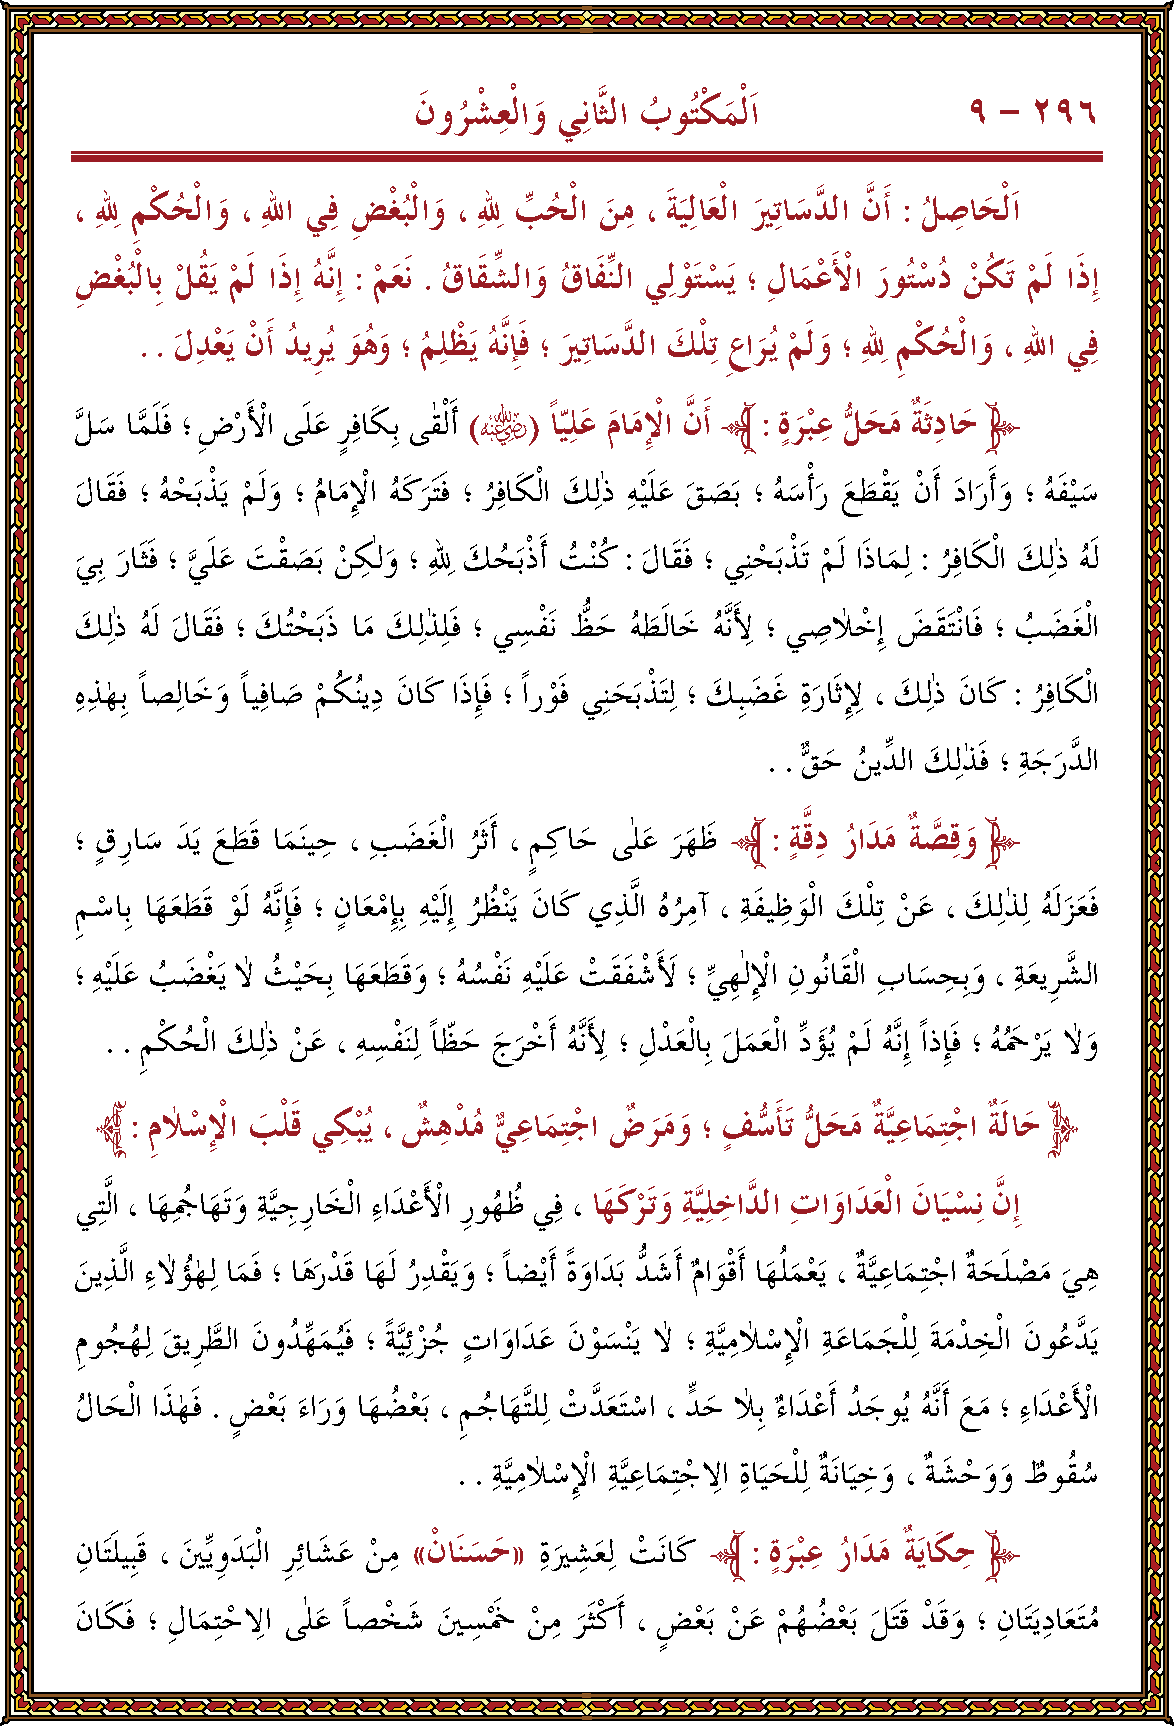 ٢٩٦ - ٩
اَلْمَكْتُوبُ الثَّانِي وَالْعِشْرُونَ
اَلْحَاصِلُ : أَنَّ الدَّسَاتِيرَ الْعَالِيَةَ ، مِنَ الْحُبِّ لِلّٰهِ ، وَالْبُغْضِ فِي اللهِ ، وَالْحُكْمِ لِلّٰهِ ،
إِذَا لَمْ تَكُنْ دُسْتُورَ الْأَعْمَالِ ؛ يَسْتَوْلِي النِّفَاقُ وَالشِّقَاقُ . نَعَمْ : إِنَّهُ إِذَا لَمْ يَقُلْ بِالْبُغْضِ
فِي اللهِ ، وَالْحُكْمِ لِلّٰهِ ؛ وَلَمْ يُرَاعِ تِلْكَ الدَّسَاتِيرَ ؛ فَإِنَّهُ يَظْلِمُ ؛ وَهُوَ يُرِيدُ أَنْ يَعْدِلَ . .
﴿ حَادِثَةٌ مَحَلُّ عِبْرَةٍ : ﴾ أَنَّ الْإِمَامَ عَلِيّاً (رضي الله عنه) أَلْقٰى بِكَافِرٍ عَلَى الْأَرْضِ ؛ فَلَمَّا سَلَّ
سَيْفَهُ ؛ وَأَرَادَ أَنْ يَقْطَعَ رَأْسَهُ ؛ بَصَقَ عَلَيْهِ ذٰلِكَ الْكَافِرُ ؛ فَتَرَكَهُ الْإِمَامُ ؛ وَلَمْ يَذْبَحْهُ ؛ فَقَالَ
لَهُ ذٰلِكَ الْكَافِرُ : لِمَاذَا لَمْ تَذْبَحْنِي ؛ فَقَالَ : كُنْتُ أَذْبَحُكَ لِلّٰهِ ؛ وَلٰكِنْ بَصَقْتَ عَلَيَّ ؛ فَثَارَ بِيَ
الْغَضَبُ ؛ فَانْتَقَضَ إِخْلَاصِي ؛ لِأَنَّهُ خَالَطَهُ حَظُّ نَفْسِي ؛ فَلِذٰلِكَ مَا ذَبَحْتُكَ ؛ فَقَالَ لَهُ ذٰلِكَ
الْكَافِرُ : كَانَ ذٰلِكَ ، لِإِثَارَةِ غَضَبِكَ ؛ لِتَذْبَحَنِي فَوْراً ؛ فَإِذَا كَانَ دِينُكُمْ صَافِياً وَخَالِصاً بِهٰذِهِ
الدَّرَجَةِ ؛ فَذٰلِكَ الدِّينُ حَقٌّ . .
﴿ وَقِصَّةٌ مَدَارُ دِقَّةٍ : ﴾ ظَهَرَ عَلٰى حَاكِمٍ ، أَثَرُ الْغَضَبِ ، حِينَمَا قَطَعَ يَدَ سَارِقٍ ؛
فَعَزَلَهُ لِذٰلِكَ ، عَنْ تِلْكَ الْوَظِيفَةِ ، آمِرُهُ الَّذِي كَانَ يَنْظُرُ إِلَيْهِ بِإِمْعَانٍ ؛ فَإِنَّهُ لَوْ قَطَعَهَا بِاسْمِ
الشَّرِيعَةِ ، وَبِحِسَابِ الْقَانُونِ الْإِلٰهِيِّ ؛ لَأَشْفَقَتْ عَلَيْهِ نَفْسُهُ ؛ وَقَطَعَهَا بِحَيْثُ لَا يَغْضَبُ عَلَيْهِ ؛
وَلَا يَرْحَمُهُ ؛ فَإِذاً إِنَّهُ لَمْ يُؤَدِّ الْعَمَلَ بِالْعَدْلِ ؛ لِأَنَّهُ أَخْرَجَ حَظّاً لِنَفْسِهِ ، عَنْ ذٰلِكَ الْحُكْمِ . .
﴿ حَالَةٌ اجْتِمَاعِيَّةٌ مَحَلُّ تَأَسُّفٍ ؛ وَمَرَضٌ اجْتِمَاعِيٌّ مُدْهِشٌ ، يُبْكِي قَلْبَ الْإِسْلَامِ : ﴾
إِنَّ نِسْيَانَ الْعَدَاوَاتِ الدَّاخِلِيَّةِ وَتَرْكَهَا ، فِي ظُهُورِ الْأَعْدَاءِ الْخَارِجِيَّةِ وَتَهَاجُمِهَا ، الَّتِي
هِيَ مَصْلَحَةٌ اجْتِمَاعِيَّةٌ ، يَعْمَلُهَا أَقْوَامٌ أَشَدُّ بَدَاوَةً أَيْضاً ؛ وَيَقْدِرُ لَهَا قَدْرَهَا ؛ فَمَا لِهٰؤُلَاءِ الَّذِينَ
يَدَّعُونَ الْخِدْمَةَ لِلْجَمَاعَةِ الْإِسْلَامِيَّةِ ؛ لَا يَنْسَوْنَ عَدَاوَاتٍ جُزْئِيَّةً ؛ فَيُمَهِّدُونَ الطَّرِيقَ لِهُجُومِ
الْأَعْدَاءِ ؛ مَعَ أَنَّهُ يُوجَدُ أَعْدَاءٌ بِلَا حَدٍّ ، اسْتَعَدَّتْ لِلتَّهَاجُمِ ، بَعْضُهَا وَرَاءَ بَعْضٍ . فَهٰذَا الْحَالُ
سُقُوطٌ وَوَحْشَةٌ ، وَخِيَانَةٌ لِلْحَيَاةِ الِاجْتِمَاعِيَّةِ الْإِسْلَامِيَّةِ . .
﴿ حِكَايَةٌ مَدَارُ عِبْرَةٍ : ﴾ كَانَتْ لِعَشِيرَةِ «حَسَنَانْ» مِنْ عَشَائِرِ الْبَدَوِيِّينَ ، قَبِيلَتَانِ
مُتَعَادِيَتَانِ ؛ وَقَدْ قَتَلَ بَعْضُهُمْ عَنْ بَعْضٍ ، أَكْثَرَ مِنْ خَمْسِينَ شَخْصاً عَلَى الِاحْتِمَالِ ؛ فَكَانَ